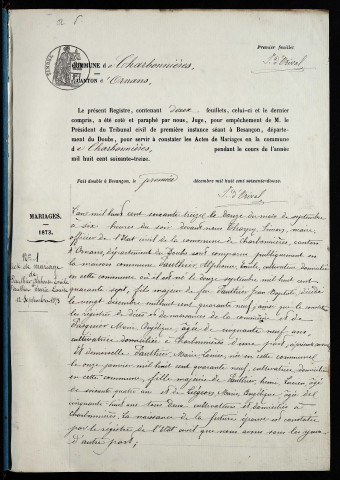 Premier feuillet
COMMUNE de Charbonnières,
CANTON d'Ornans
Le présent Registre, contenant deux feuillets, celui-ci et le dernier
compris, a été coté et paraphé par nous, Juge, pour empêchement de M. le
Président du Tribunal civil de première instance séant à Besançon, départe-
ment du Doubs, pour servir à constater les Actes de Mariages en la commune
de Charbonnières, pendant le cours de l'année
mil huit cent soixante-treize.
Fait double à Besançon, le premier décembre mil huit cent soixante-douze.
MARIAGES.
1873.
N° 1
Acte de mariage
L'an mil huit cent soixante treize le douze du mois de septembre
à six heures du soir devant nous maire,
officier de l'Etat civil de la commune de Charbonnières, canton
d'Ornans, département du Doubs sont comparus publiquement en
la maison commune Alphonse Emile, cultivateur domicilié
en cette commune où il est né le douze septembre mil huit cent
quarante sept, fils majeur de feu Jean Baptiste, décédé
le vingt décembre mil huit cent quarante neuf,
les registres de décès et de naissances de la commune et de
Marie Angélique, âgée de cinquante neuf ans,
cultivatrice domiciliée à Charbonnières d'une part,
et demoiselle Marie Louise, née en cette commune
le onze janvier mil huit cent quarante neuf, cultivatrice, domiciliée
en cette commune, fille majeure de
de soixante quatre ans et de Marie Angélique, âgée de
cinquante huit ans tous deux cultivateurs et domiciliés à
Charbonnières. La naissance de la future épouse est constatée
par le registre de l'Etat civil que nous avons sous les yeux
d'autre part;